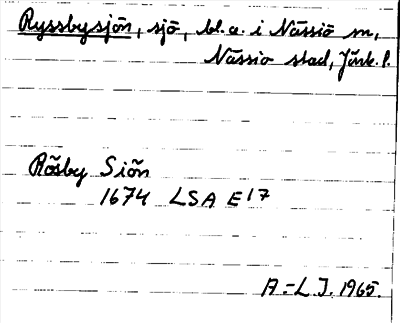 Ryssbysjön, sjö, bl.a. i Nässjö sn,
Nässjö stad, Jönk. l.
Rösby Siön
1674 LSA E17
A-L J. 1965.